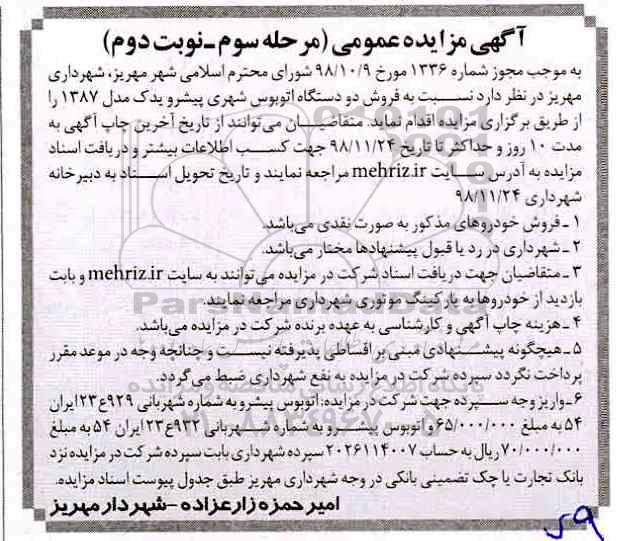 آگهی مزایده عمومی (مرحله سوم ـ نوبت دوم)
به موجب مجوز شماره ۱۳۳۶ مورخ ۹۸/۱۰/۹ شورای محترم اسلامی شهر مهریز، شهرداری
مهریز در نظر دارد نسبت به فروش دو دستگاه اتوبوس شهری پیشرو یدک مدل ۱۳۸۷ را
از طریق برگزاری مزایده اقدام نماید. متقاضیان می‌توانند از تاریخ آخرین چاپ آگهی به
مدت ۱۰ روز و حداکثر تا تاریخ ۹۸/۱۱/۲۴ جهت کسب اطلاعات بیشتر و دریافت اسناد
مزایده به آدرس سایت mehriz.ir مراجعه نمایند و تاریخ تحویل اسناد به دبیرخانه
شهرداری ۹۸/۱۱/۲۴
۱ ـ فروش خودروهای مذکور به صورت نقدی می‌باشد.
۲ ـ شهرداری در رد یا قبول پیشنهادها مختار می‌باشد.
۳ ـ متقاضیان جهت دریافت اسناد شرکت در مزایده می‌توانند به سایت mehriz.ir و بابت
بازدید از خودروها به پارکینگ موتوری شهرداری مراجعه نمایند.
ParsNamadData
۴ ـ هزینه چاپ آگهی و کارشناسی به عهده برنده شرکت در مزایده می‌باشد.
۵ ـ هیچگونه پیشنهادی مبنی بر اقساطی پذیرفته نیست و چنانچه وجه در موعد مقرر
پرداخت نگردد سپرده شرکت در مزایده به نفع شهرداری ضبط می‌گردد.
۶ ـ واریز وجه سپرده جهت شرکت در مزایده: اتوبوس پیشرو به شماره شهربانی ۹۲۹ع۲۳ ایران
۵۴ به مبلغ ۶۵/۰۰۰/۰۰۰ و اتوبوس پیشرو به شماره شهربانی ۹۳۲ع۲۳ ایران ۵۴ به مبلغ
۷۰/۰۰۰/۰۰۰ ریال به حساب ۲۰۲۶۱۱۴۰۰۷ سپرده شهرداری بابت سپرده شرکت در مزایده نزد
بانک تجارت یا چک تضمینی بانکی در وجه شهرداری مهریز طبق جدول پیوست اسناد مزایده.
امیر حمزه زارعزاده - شهردار مهریز